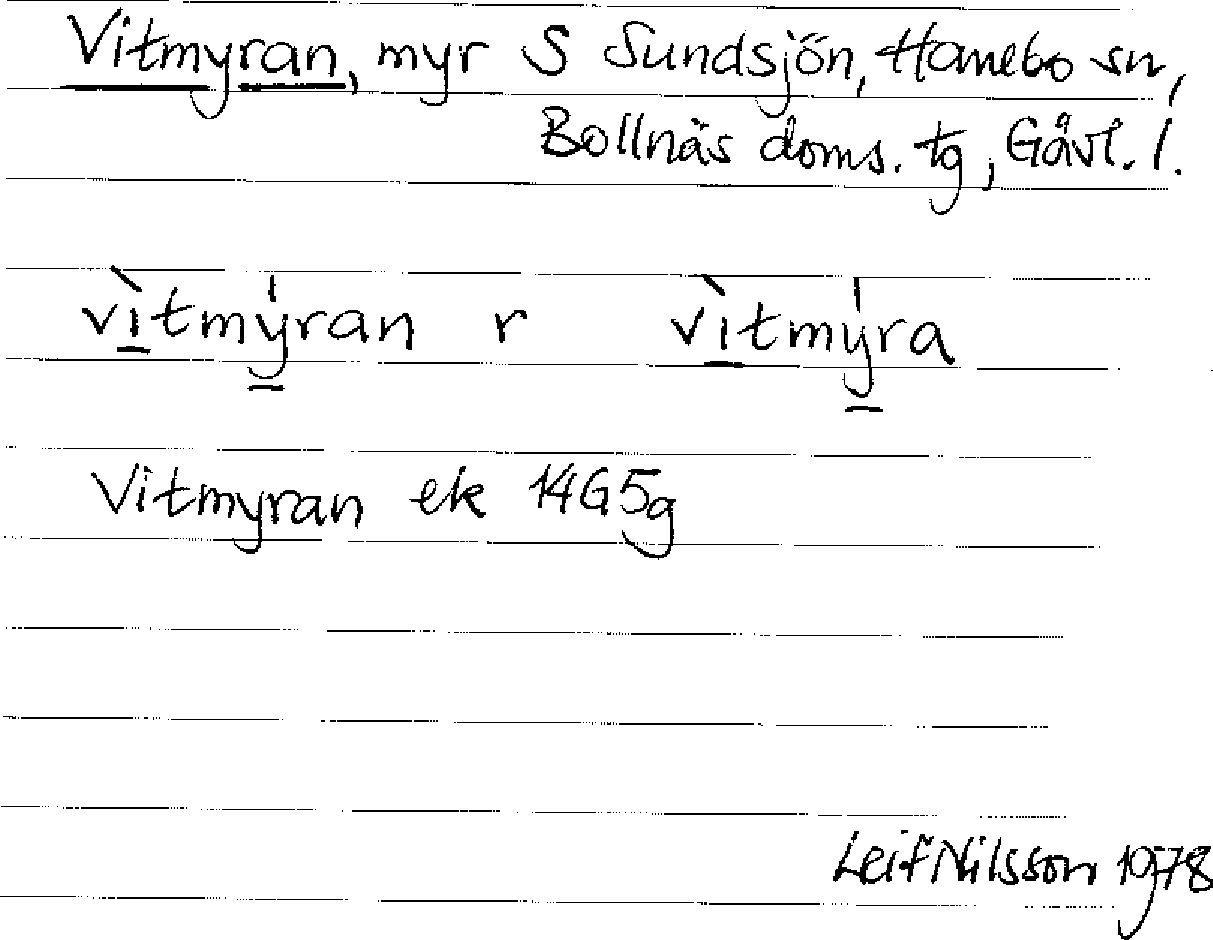 Vitmyran, myr S Sundsjön, Hanebo sn,
Bollnäs doms. tg, Gävl. l.
vì̠tmy̠̍ran r vì̠tmy̠̍ra
Vitmyran ek 14G5g
Leif Nilsson 1978